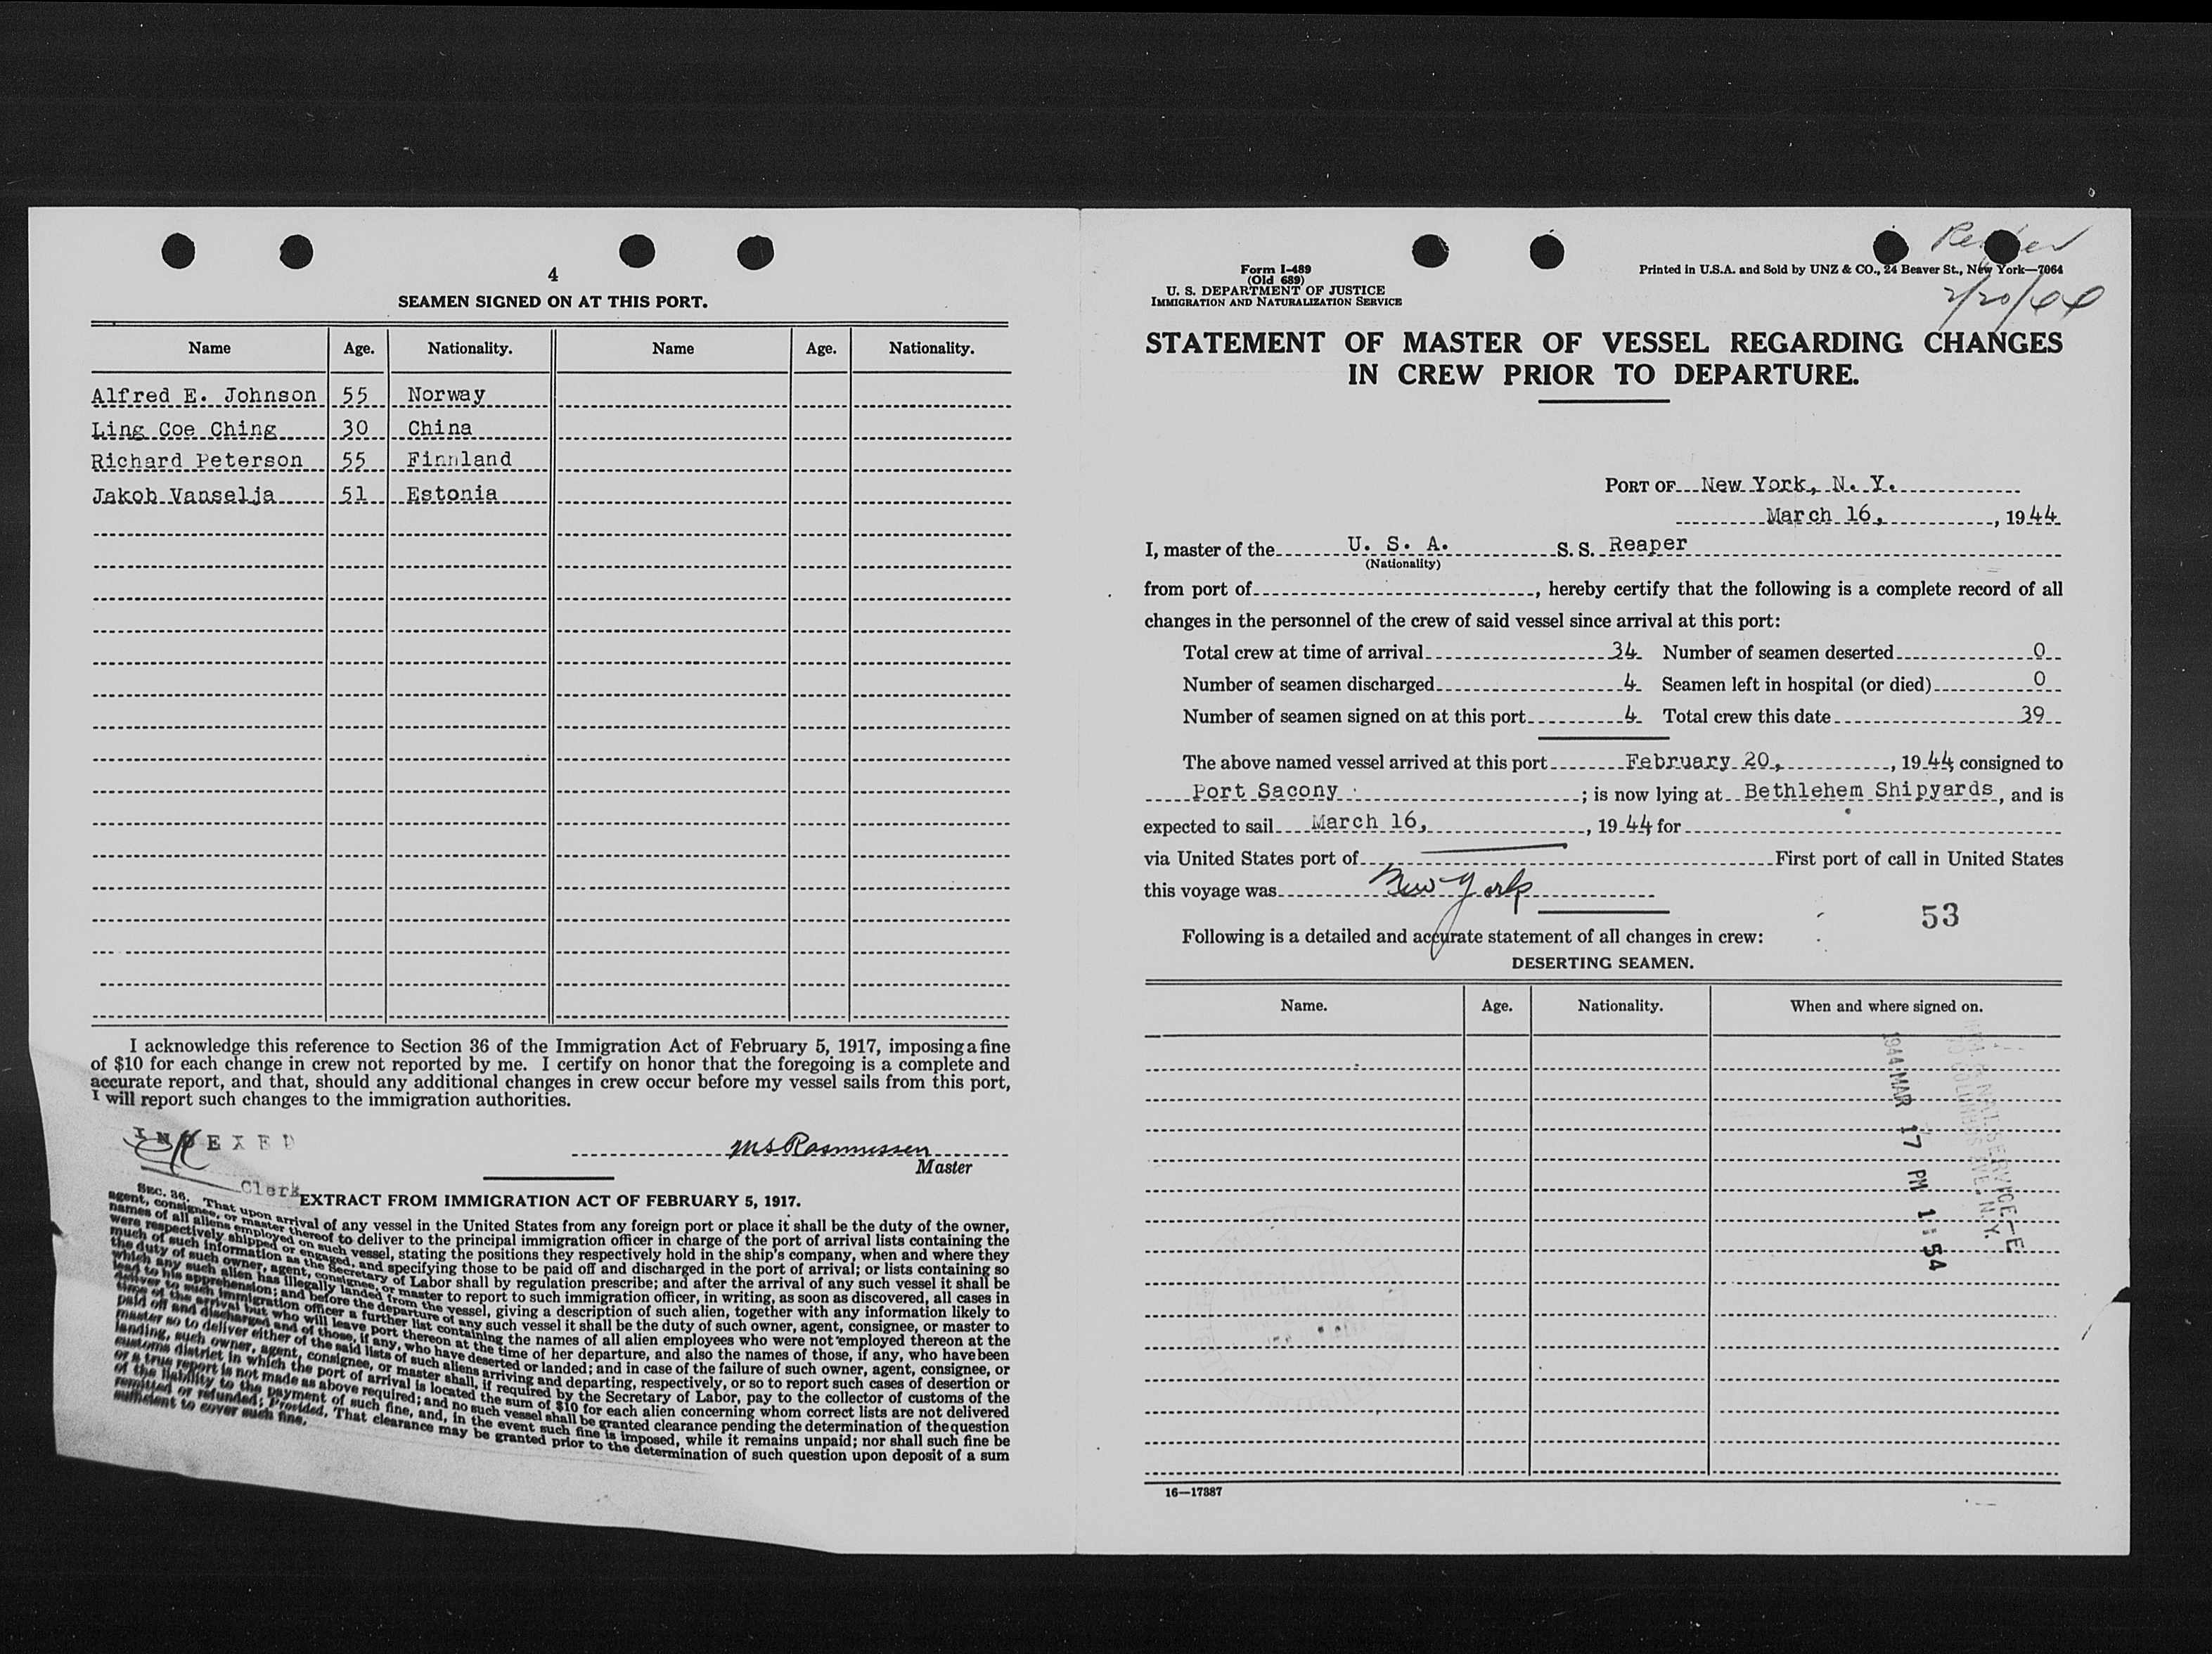 4
SEAMEN SIGNED ON AT THIS PORT.
Name Age. Nationality. Name Age. Nationality.
Alfred E. Johnson 55 Norway
Ling Coe Ching 30 China
Richard Peterson 55 Finnland
Jakob Vanselja 51 Estonia
I acknowledge this reference to Section 36 of the Immigration Act of February 5, 1917, imposing a fine
of $10 for each change in crew not reported by me. I certify on honor that the foregoing is a complete and
accurate report, and that, should any additional changes in crew occur before my vessel sails from this port,
I will report such changes to the immigration authorities.
INDEXED
MS Rasmussen
Master
Clerk
EXTRACT FROM IMMIGRATION ACT OF FEBRUARY 5, 1917.
SEC. 36. That upon arrival of any vessel in the United States from any foreign port or place it shall be the duty of the owner,
agent, consignee, or master thereof to deliver to the principal immigration officer in charge of the port of arrival lists containing the
names of all aliens employed on such vessel, stating the positions they respectively hold in the ship's company, when and where they
were respectively shipped or engaged, and specifying those to be paid off and discharged in the port of arrival; or lists containing so
much of such information as the Secretary of Labor shall by regulation prescribe; and after the arrival of any such vessel it shall be
the duty of such owner, agent, consignee, or master to report to such immigration officer, in writing, as soon as discovered, all cases in
which any such alien has illegally landed from the vessel, giving a description of such alien, together with any information likely to
lead to his apprehension; and before the departure of any such vessel it shall be the duty of such owner, agent, consignee, or master to
deliver to such immigration officer a further list containing the names of all alien employees who were not employed thereon at the
time of the arrival but who will leave port thereon at the time of her departure, and also the names of those, if any, who have been
paid off and discharged and of those, if any, who have deserted or landed; and in case of the failure of such owner, agent, consignee, or
master so to deliver either of the said lists of such aliens arriving and departing, respectively, or so to report such cases of desertion or
landing, such owner, agent, consignee, or master shall, if required by the Secretary of Labor, pay to the collector of customs of the
customs district in which the port of arrival is located the sum of $10 for each alien concerning whom correct lists are not delivered
or a true report is not made as above required; and no such vessel shall be granted clearance pending the determination of the question
of the liability to the payment of such fine, and, in the event such fine is imposed, while it remains unpaid; nor shall such fine be
remitted or refunded: Provided, That clearance may be granted prior to the determination of such question upon deposit of a sum
sufficient to cover such fine.
Reaper
2/20/44
Form I-489
(Old 689)
U. S. DEPARTMENT OF JUSTICE
IMMIGRATION AND NATURALIZATION SERVICE
Printed in U.S.A. and Sold by UNZ & CO., 24 Beaver St., New York—7064
STATEMENT OF MASTER OF VESSEL REGARDING CHANGES
IN CREW PRIOR TO DEPARTURE.
PORT OF New York, N. Y.
March 16, , 1944
I, master of the U. S. A. S. S. Reaper
(Nationality)
from port of , hereby certify that the following is a complete record of all
changes in the personnel of the crew of said vessel since arrival at this port:
Total crew at time of arrival 34 Number of seamen deserted 0
Number of seamen discharged 4 Seamen left in hospital (or died) 0
Number of seamen signed on at this port 4 Total crew this date 39
The above named vessel arrived at this port February 20, , 1944, consigned to
Port Sacony ; is now lying at Bethlehem Shipyards, and is
expected to sail March 16, , 1944 for
via United States port of First port of call in United States
this voyage was New York
53
Following is a detailed and accurate statement of all changes in crew:
DESERTING SEAMEN.
Name. Age. Nationality. When and where signed on.
1944 MAR 17 PM 1:54
16—17887